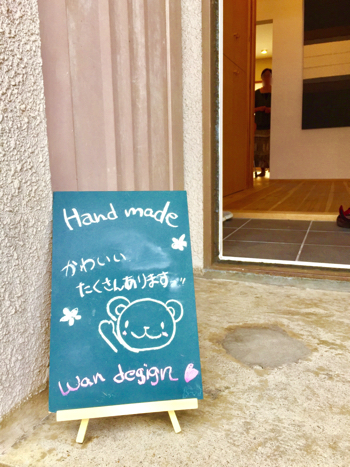 Hand made
かわいい
たくさんあります
wan degign